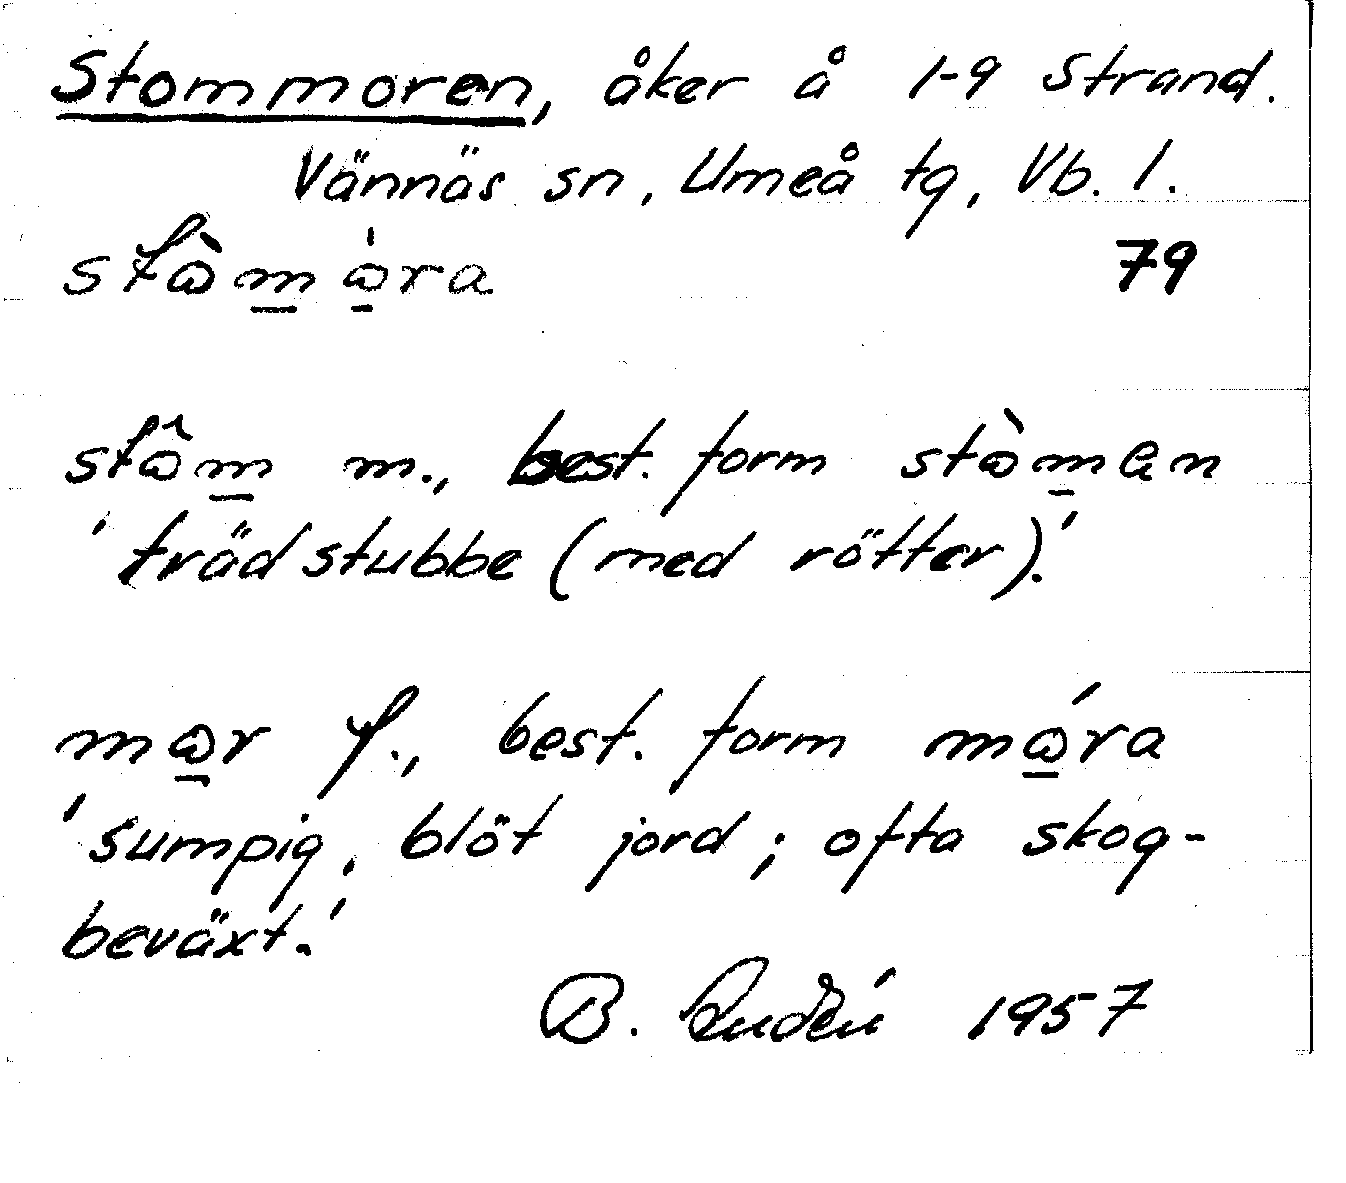 Stommoren, åker å 1-9 Strand.
Vännäs sn, Umeå tg, Vb. l.
stòm̲ò̲ra 79
stôm̲ m., best. form stòm̲en
'trädstubbe (med rötter).'
mo̲r f., best. form mó̲ra
'sumpig, blöt jord; ofta skog-
beväxt.'
B. Rudén 1957